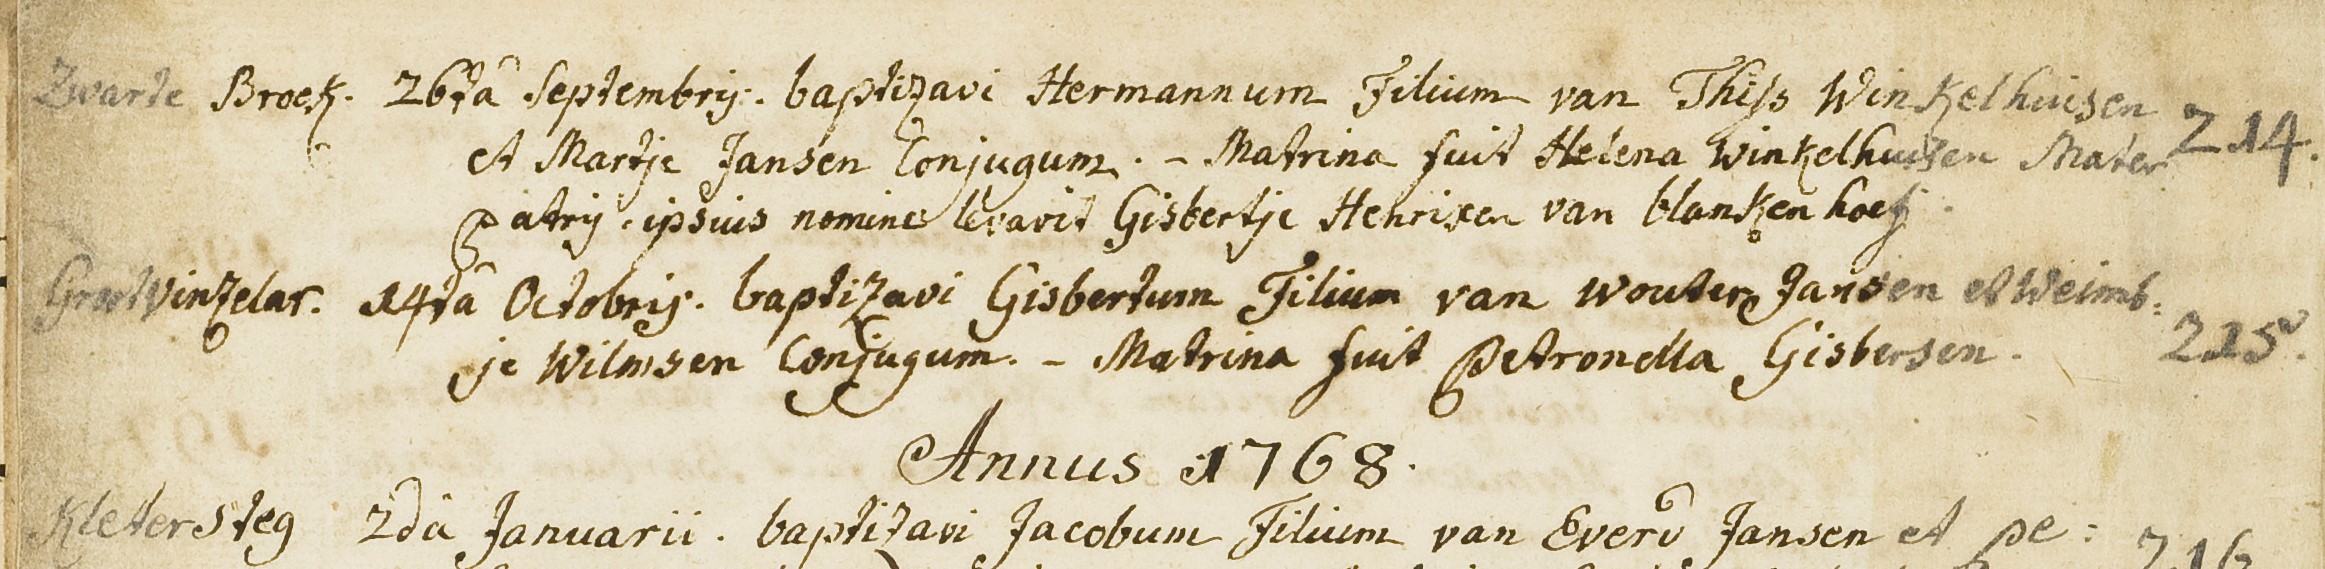 Zwarte Broek. 26ta Septembris. baptizavi Hermannum Filium van Thijs Winkelhuisen 214.
et Martje Jansen Conjugum. - Matrina fuit Helena Winkelhuizen Mater
patris. ipsius nomine levavit Gisbertje Henrixen van blankenhoef.
Groot Vinzelar. 14ta Octobris. baptizavi Gisbertum Filium van Wouter Jansen et Weimb: 215.
je Wilmsen Conjugum. - Matrina fuit Petronella Gisbersen.
Annus 1768.
Kletersteg 2da Januarii. baptizavi Jacobum Filium van Everd Jansen et pe: 216